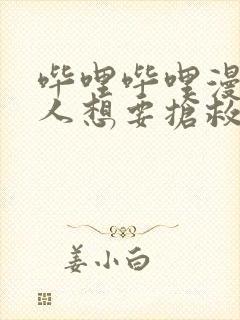 哔哩哔哩漫
人想要抢救
姜小白